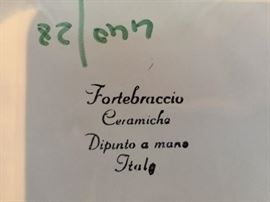 Fortebraccio
Ceramiche
Dipinto a mano
Italy